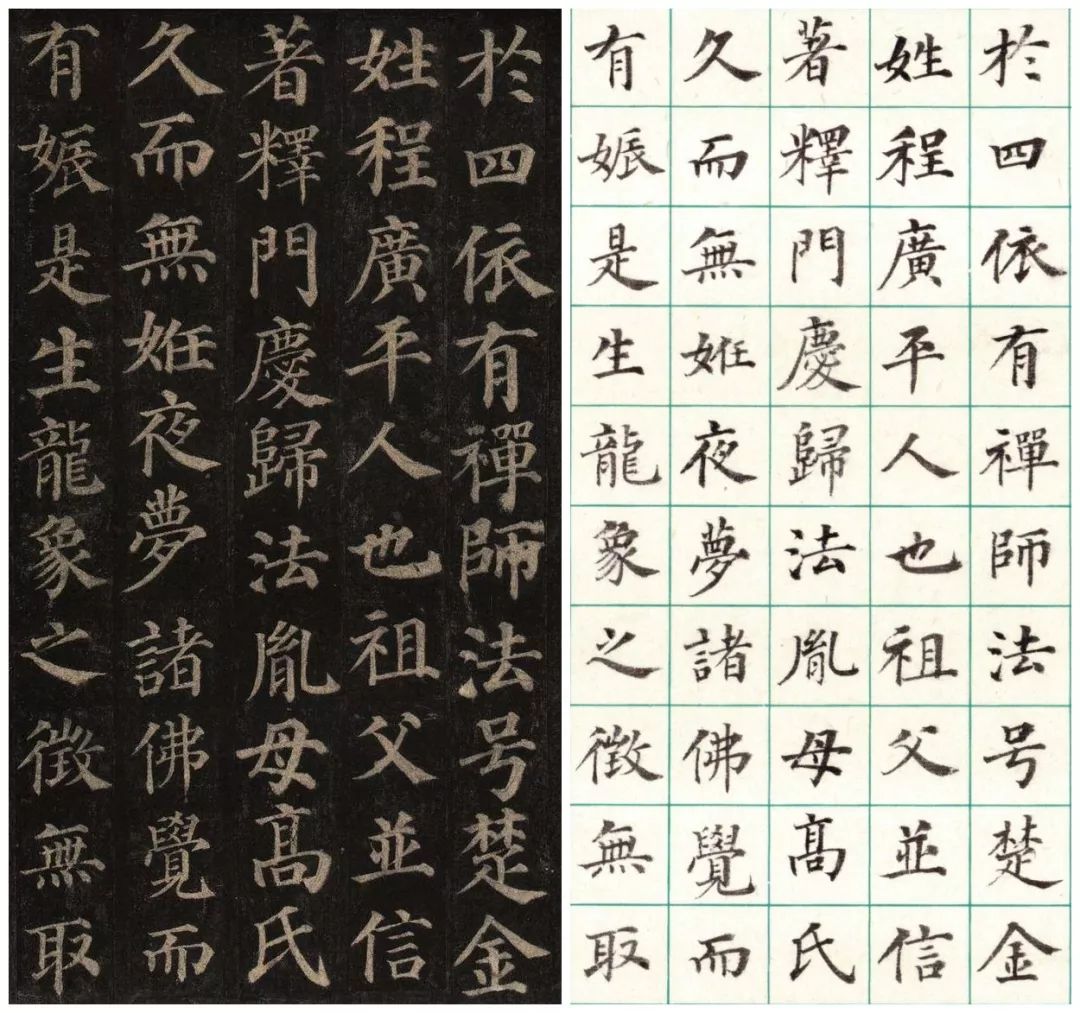 於四依有禪師法号楚金
姓程廣平人也祖父並信
著釋門慶歸法胤母髙氏
久而無姙夜夢諸佛覺而
有娠是生龍象之徵無取
於四依有禪師法号楚金
姓程廣平人也祖父並信
著釋門慶歸法胤母髙氏
久而無姙夜夢諸佛覺而
有娠是生龍象之徵無取